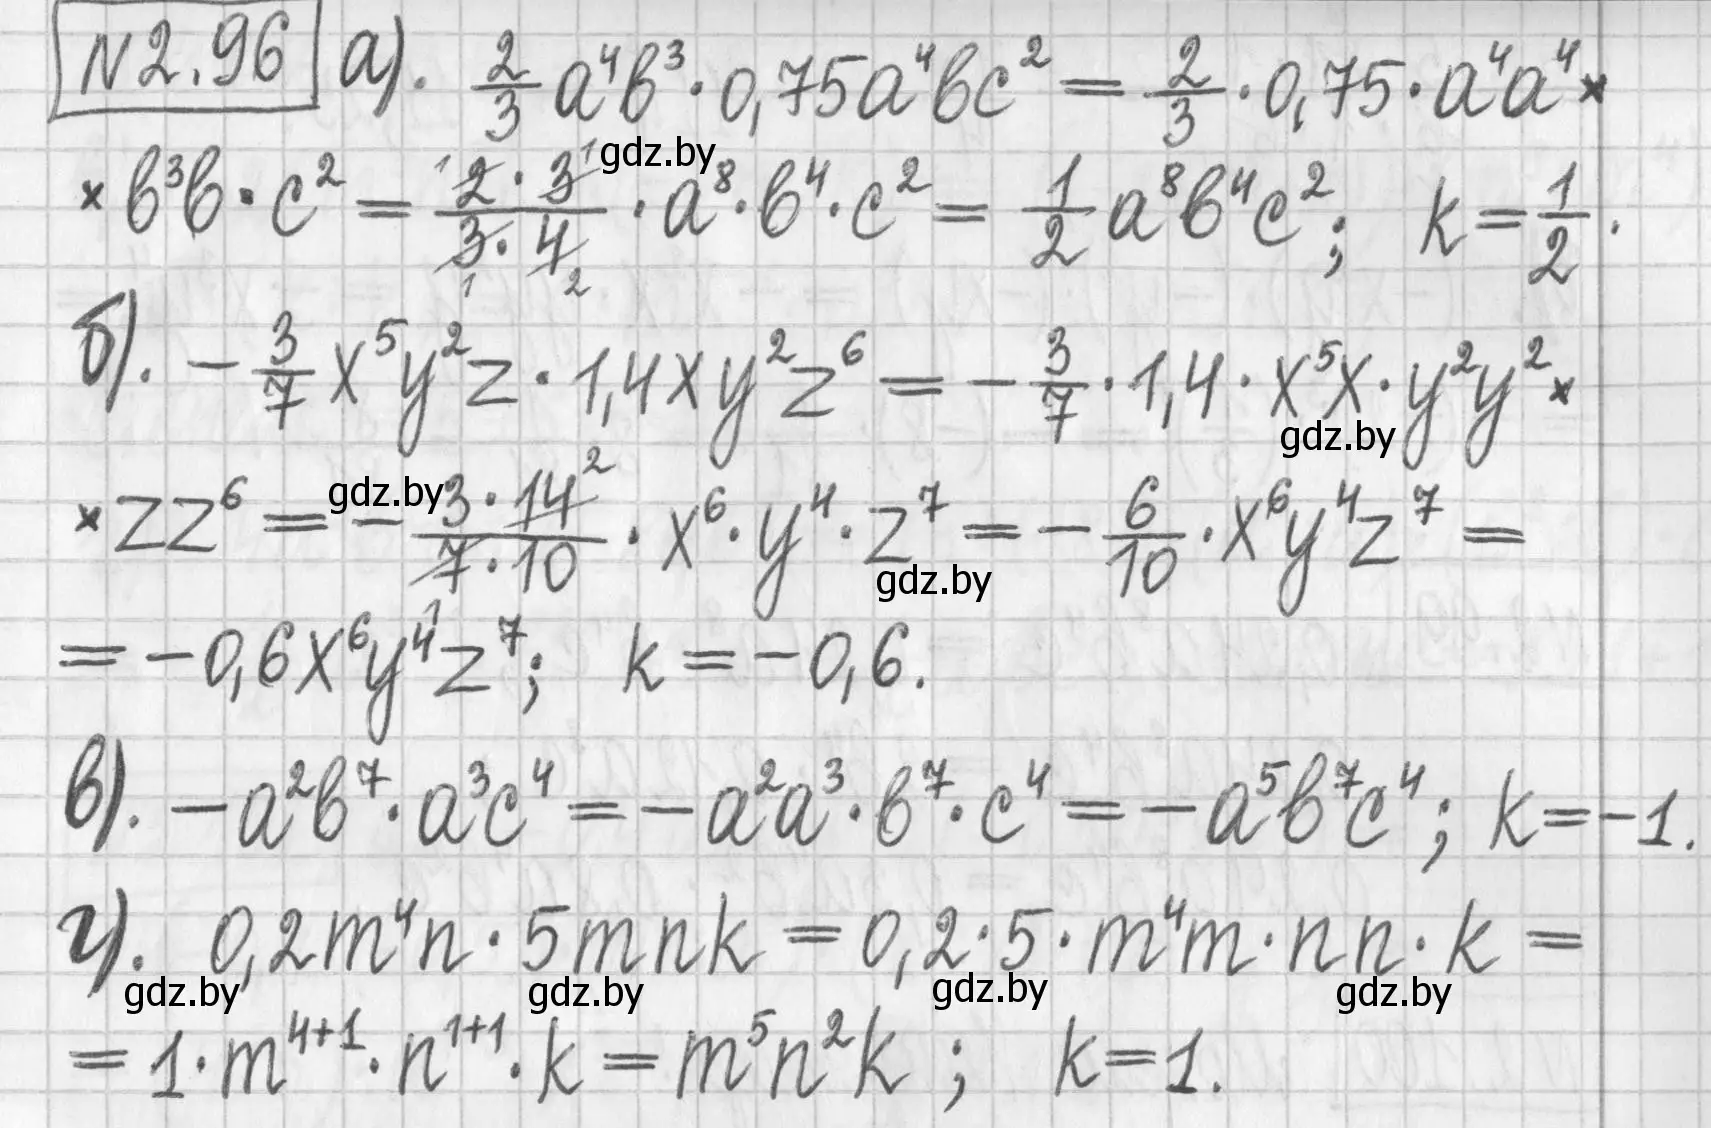 №2.96 а). 2/3 a⁴b³ · 0,75a⁴bc² = 2/3 · 0,75 · a⁴a⁴ ×
gdz.by
× b³b · c² = 2 · 3 / 3 · 4 · a⁸ · b⁴ · c² = 1/2 a⁸b⁴c²; k = 1/2.
б). − 3/7 x⁵y²z · 1,4xy²z⁶ = − 3/7 · 1,4 · x⁵x · y²y² ×
gdz.by
× zz⁶ = − 3 · 14 / 7 · 10 · x⁶ · y⁴ · z⁷ = − 6/10 · x⁶y⁴z⁷ =
gdz.by
gdz.by
= −0,6x⁶y⁴z⁷; k = −0,6.
в). −a²b⁷ · a³c⁴ = −a²a³ · b⁷ · c⁴ = −a⁵b⁷c⁴; k = −1.
г). 0,2m⁴n · 5mnk = 0,2 · 5 · m⁴m · nn · k =
gdz.by gdz.by gdz.by gdz.by
= 1 · m⁴⁺¹ · n¹⁺¹ · k = m⁵n²k; k = 1.